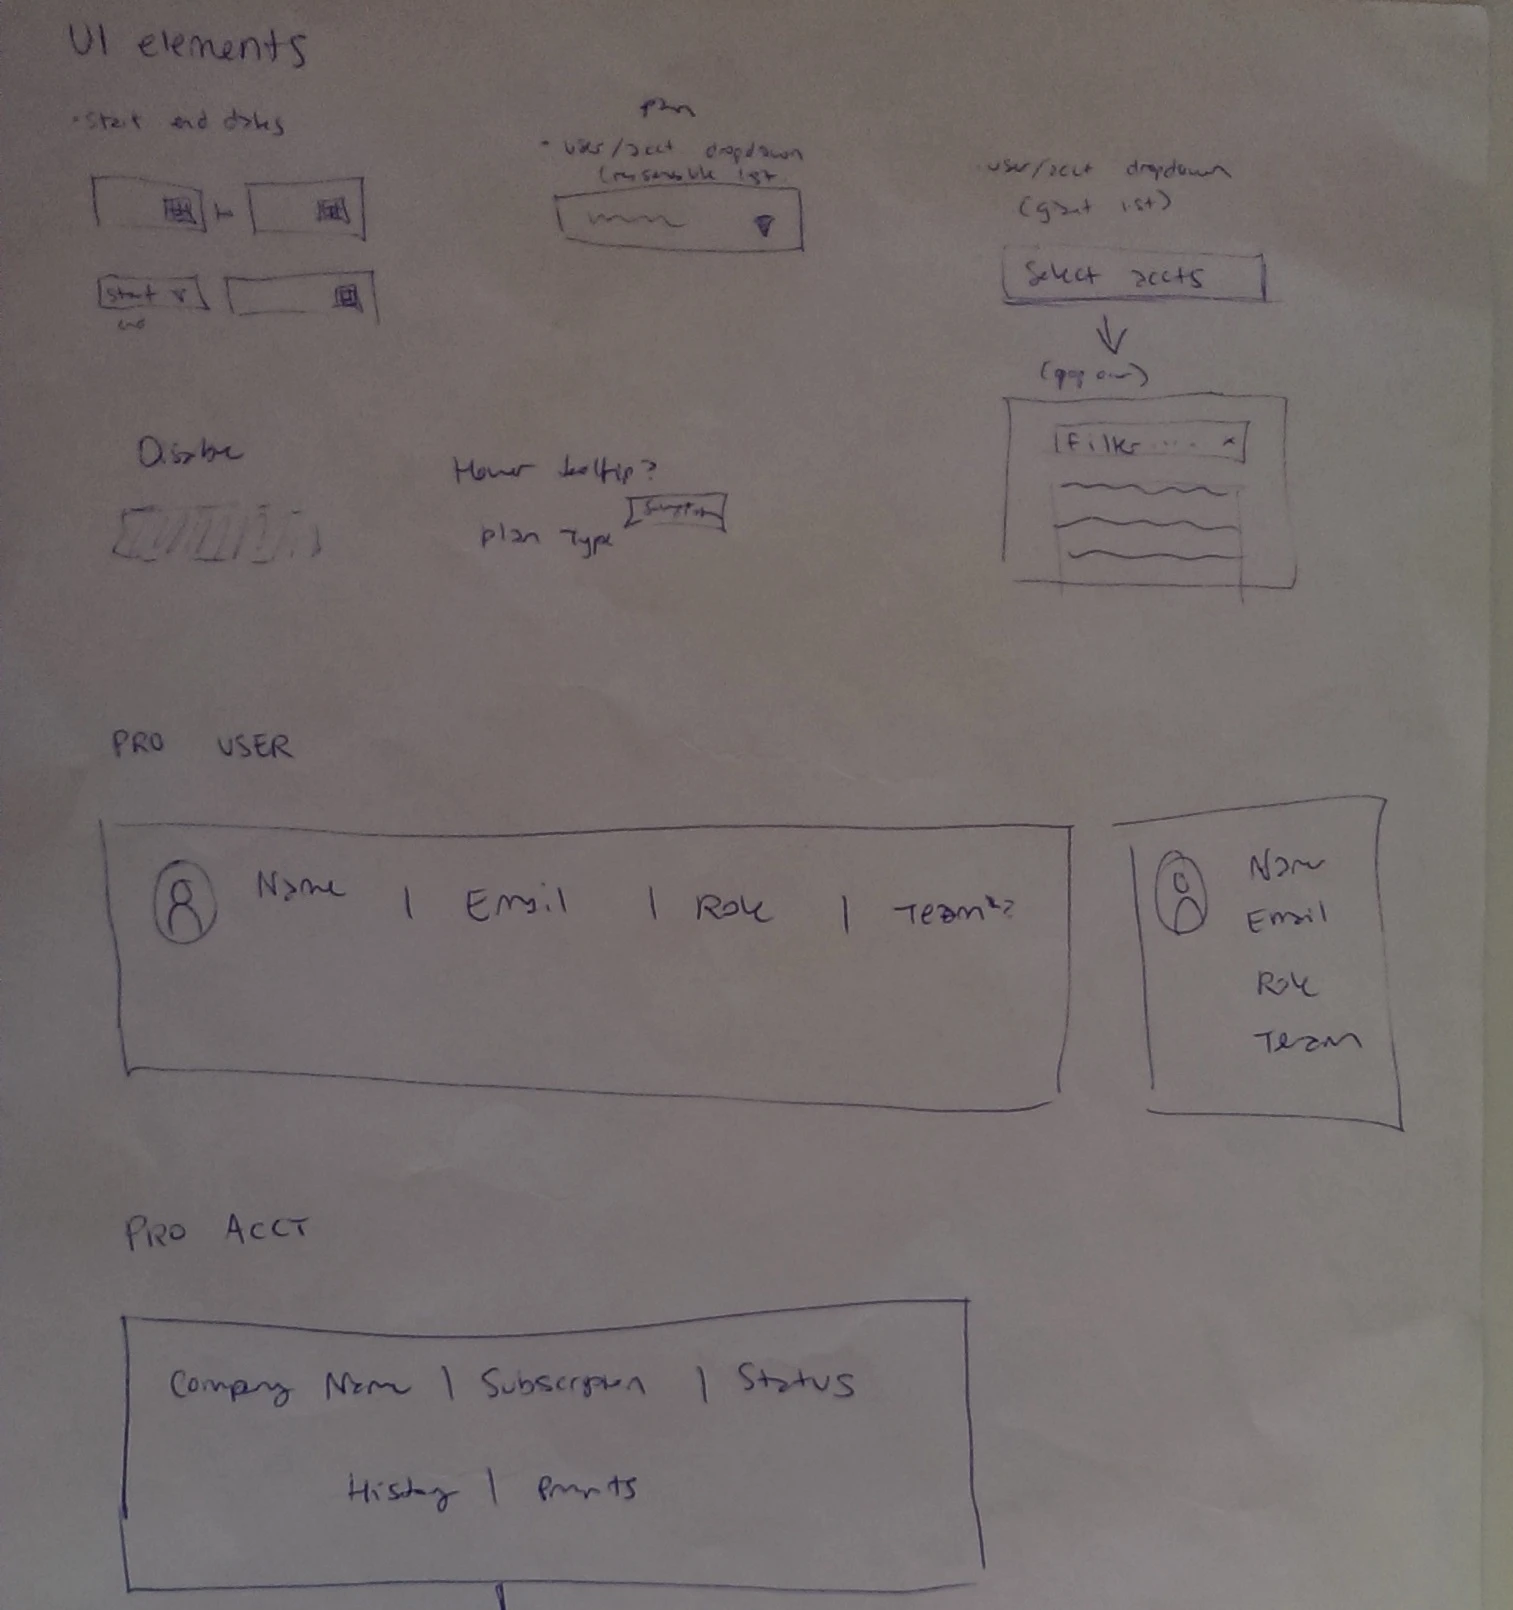 UI elements
• start end dates
to
start
end
plan
• user/acct dropdown
(reasonable list
• user/acct dropdown
(giant list)
Select accts
(pop over)
Filter .... x
Disable
Hover tooltip?
plan Type
PRO USER
Name | Email | Role | Team
Name
Email
Role
Team
PRO ACCT
Company Name | Subscription | Status
History |